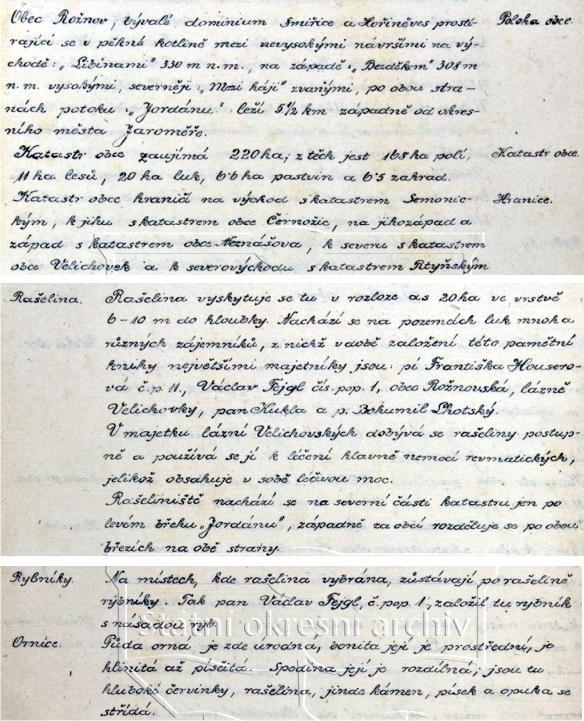 Obec Rožnov, bývalé dominium Smiřice a Hořiněves prostí-
Poloha obce.
rající se v pěkné kotlině mezi nevysokými návršími na vý-
chodě: „Libinami" 330 m n. m., na západě: „Bezděkem" 308 m
n. m. vysokými, severněji: „Mezi háji" zvanými, po obou stra-
nách potoku „Jordánu" leží 5½ km západně od okres-
ního města Jaroměře.
Katastr obce zaujímá 220 ha; z těch jest 168 ha polí,
Katastr obce.
11 ha lesů, 20 ha luk, 6·6 ha pastvin a 6·5 zahrad.
Katastr obce hraničí na východ s katastrem Semonic-
Hranice.
kým, k jihu s katastrem obce Černožic, na jihozápad a
západ s katastrem obce Neznášova, k severu s katastrem
obce Velichovek a k severovýchodu s katastrem Rtyňským
Rašelina.
Rašelina vyskytuje se tu v rozloze as 20 ha ve vrstvě
6-10 m do hloubky. Nachází se na pozemcích luk mnoha
různých zájemníků, z nichž v době založení této pamětní
knihy největšími majetníky jsou: pí Františka Housero-
vá č.p. 11., Václav Fejgl čís. pop. 1, obec Rožnovská, lázně
Velichovky, pan Kukla a p. Bohumil Lhotský.
V majetku lázní Velichovských dobývá se rašeliny postup-
ně a používá se jí k léčení hlavně nemocí revmatických,
jelikož obsahuje v sobě léčivou moc.
Rašeliniště nachází se na severní části katastru jen po
levém břehu „Jordánu", západně za obcí rozděluje se po obou
březích na obě strany.
Rybníky.
Na místech, kde rašelina vybrána, zůstávají po rašelině
rybníky. Tak pan Václav Fejgl, č. pop. 1, založil tu rybník
s násadou ryb.
Státní okresní archiv
Ornice.
Půda orná je zde úrodná, bonita její je prostřední, je
hlinitá až písčitá. Spodina její je rozdílná; jsou tu
hluboké červinky, rašelina, jinde kámen, písek a opuka se
střídá.